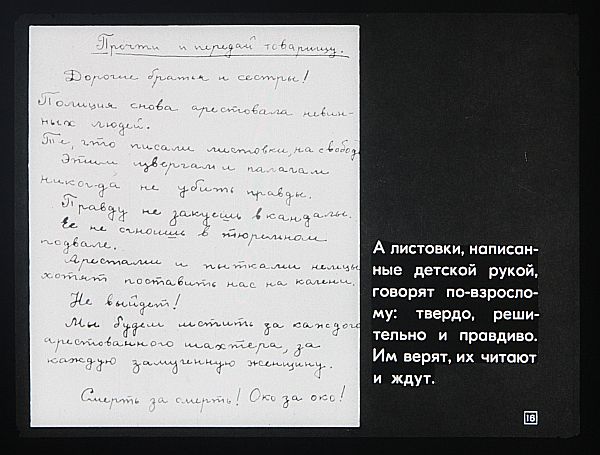 Прочти и передай товарищу.
Дорогие братья и сестры!
Полиция снова арестовала невин-
ных людей.
Те, что писали листовки, на свободе
Этим извергам и палачам
никогда не убить правды.
Правду не закуешь в кандалы.
Ее не сгноишь в тюремном
подвале.
Арестами и пытками немецы
хотят поставить нас на колени.
Не выйдет!
Мы будем мстить за каждого
арестованного шахтера, за
каждую замученную женщину.
Смерть за смерть! Око за око!
А листовки, написан-
ные детской рукой,
говорят по-взросло-
му: твердо, реши-
тельно и правдиво.
Им верят, их читают
и ждут.
16